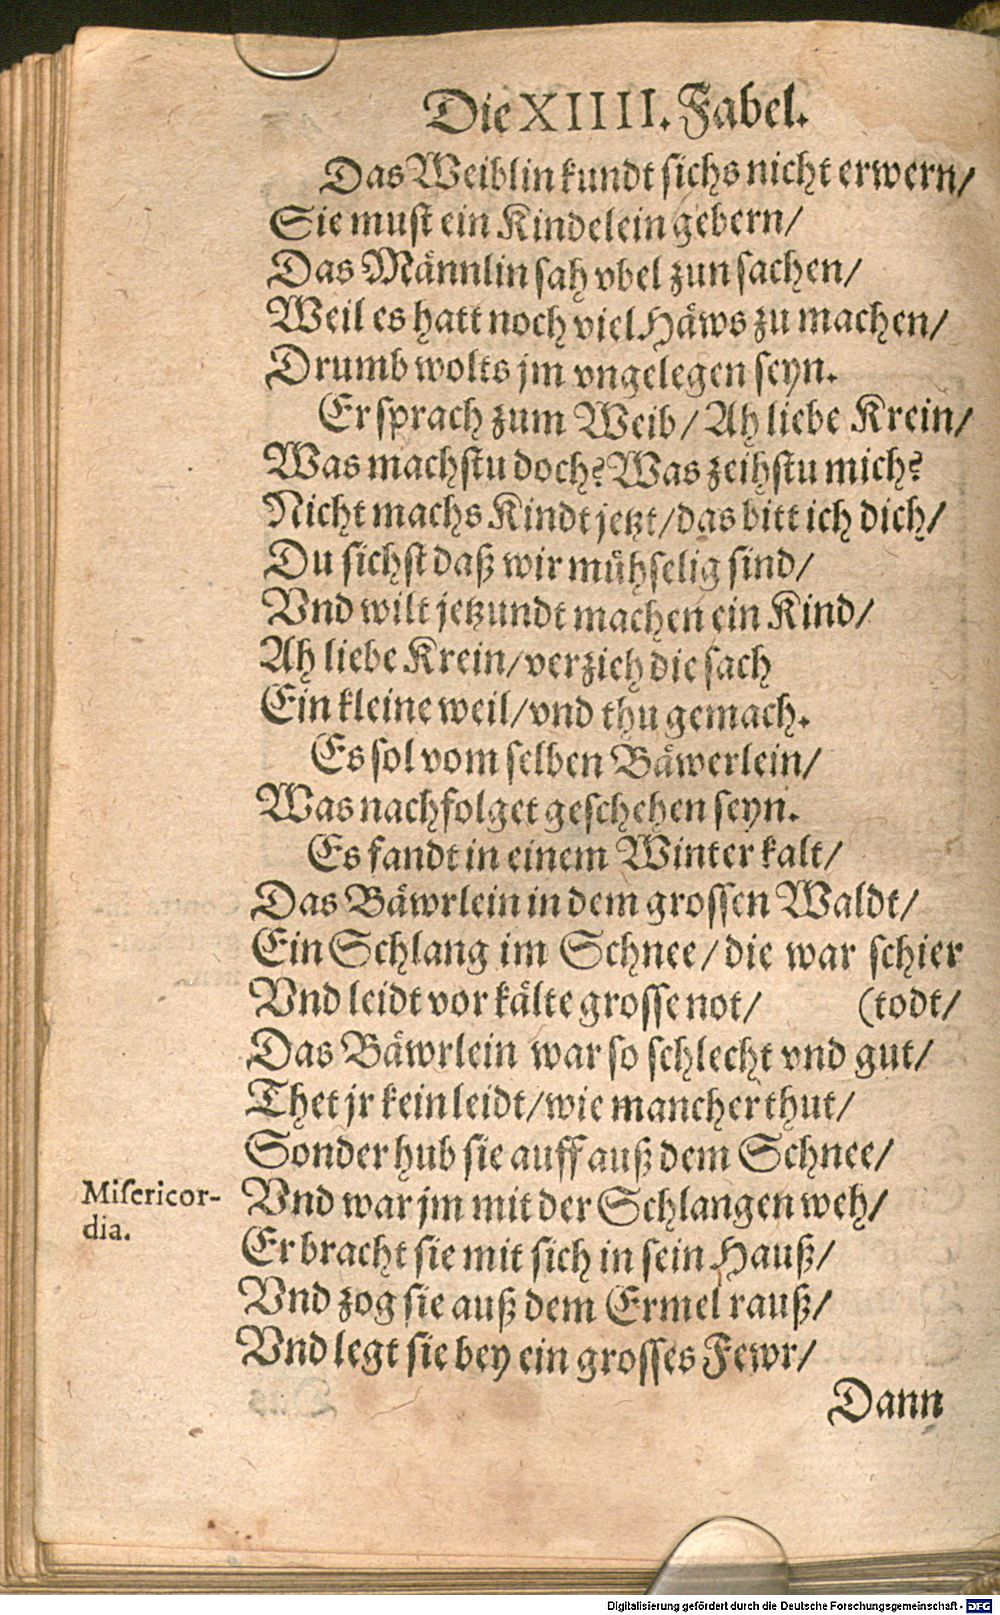 Die XIIII. Fabel.
Das Weiblin kundt sichs nicht erwern/
Sie must ein Kindelein gebern/
Das Männlin sah vbel zun sachen/
Weil es hatt noch viel Häws zu machen/
Drumb wolts jm vngelegen seyn.
Er sprach zum Weib/ Ah liebe Krein/
Was machstu doch? Was zeihstu mich?
Nicht machs Kindt jetzt/ das bitt ich dich/
Du sichst daß wir mühselig sind/
Vnd wilt jetzundt machen ein Kind/
Ah liebe Krein/ verzieh die sach
Ein kleine weil/ vnd thu gemach.
Es sol vom selben Bäwerlein/
Was nachfolget geschehen seyn.
Es fandt in einem Winter kalt/
Das Bäwrlein in dem grossen Waldt/
Ein Schlang im Schnee/ die war schier
Vnd leidt vor kälte grosse not/ (todt/
Das Bäwrlein war so schlecht vnd gut/
Thet jr kein leidt/ wie mancher thut/
Sonder hub sie auff auß dem Schnee/
Misericor-
dia.
Vnd war jm mit der Schlangen weh/
Er bracht sie mit sich in sein Hauß/
Vnd zog sie auß dem Ermel rauß/
Vnd legt sie bey ein grosses Fewr/
Dann
Digitalisierung gefördert durch die Deutsche Forschungsgemeinschaft - DFG